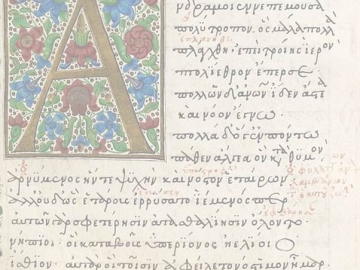 Ἄνδρα μοι ἔννεπε μοῦσα
πολύτροπον. ὃς μάλα πολλὰ
πλάγχθη. ἐπεὶ τροίης ἱερὸν
πτολίεθρον ἔπερσε.
πολλῶν δ' ἀνων ἴδεν ἄστεα
καὶ νόον ἔγνω.
πολλὰ δ' ὅγ' ἐν πόντω
πάθεν ἄλγεα ὃν κατὰ θυμόν.
ἀρνύμενος ἥν τε ψυχὴν καὶ νόστον ἑταίρων.
ἀλλ' οὐδ' ὣς ἑτάρους ἐρρύσατο ἱέμενός περ.
αὐτῶν γὰρ σφετέρησιν ἀτασθαλίησιν ὄλοντο.
νήπιοι. οἳ κατὰ βοῦς ὑπερίονος ἠελίοιο
ἤσθιον. αὐτὰρ ὁ τοῖσιν ἀφείλετο νόστιμον ἦμαρ.